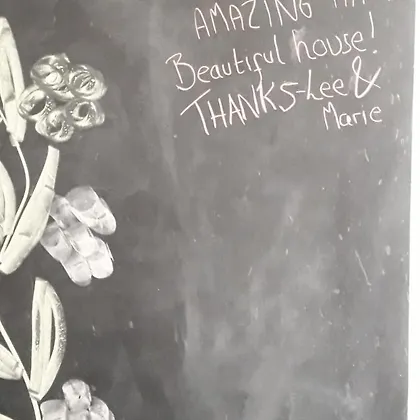 AMAZING
Beautiful house!
THANKS-Lee &
Marie